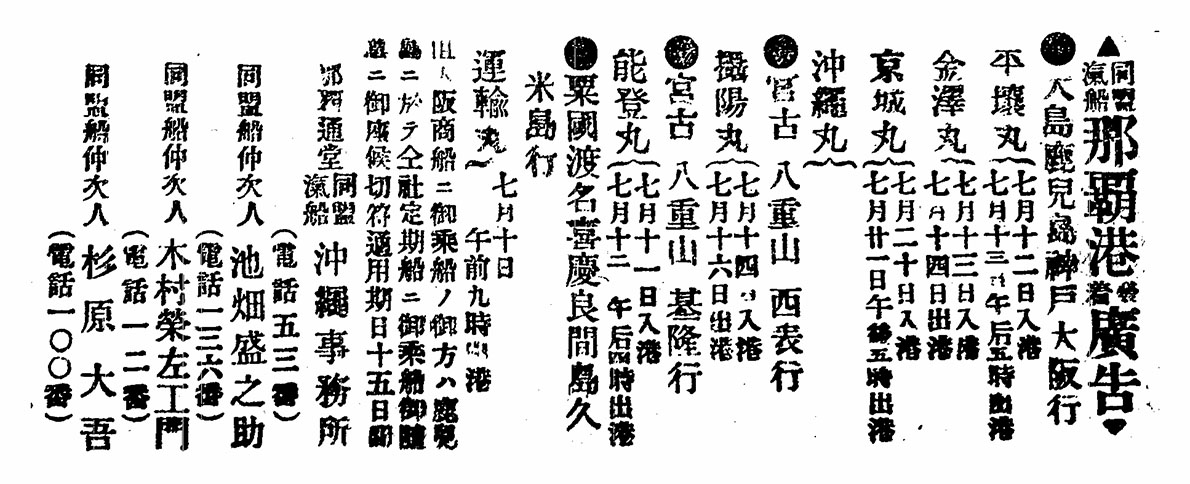 ▲同盟汽船那覇港發着廣告♥
●大島鹿兒島神戸大阪行
平壤丸{七月十二日入港
七月十三日午后五時出港
金澤丸{七月十三日入港
七月十四日出港
京城丸{七月二十日入港
七月廿一日午後五時出港
沖繩丸{
●宮古 八重山 西表行
攝陽丸{七月十四日入港
七月十六日出港
●宮古 八重山 基隆行
能登丸{七月十一日入港
七月十二 午后四時出港
●粟國渡名喜慶良間島久
米島行
運輸丸{七月十日
午前九時出港
大阪商船ニ御乘船ノ御方ハ鹿兒
島ニ於テ仝社定期船ニ御乘船御
ニ御座候切符通用期日十五日間
那覇通堂 同盟汽船 沖繩事務所
(電話五三番)
同盟船仲次人 池畑盛之助
(電話一三六番)
同盟船仲次人 木村榮左工門
(電話一二番)
同盟船仲次人 杉原大吾
(電話一〇〇番)